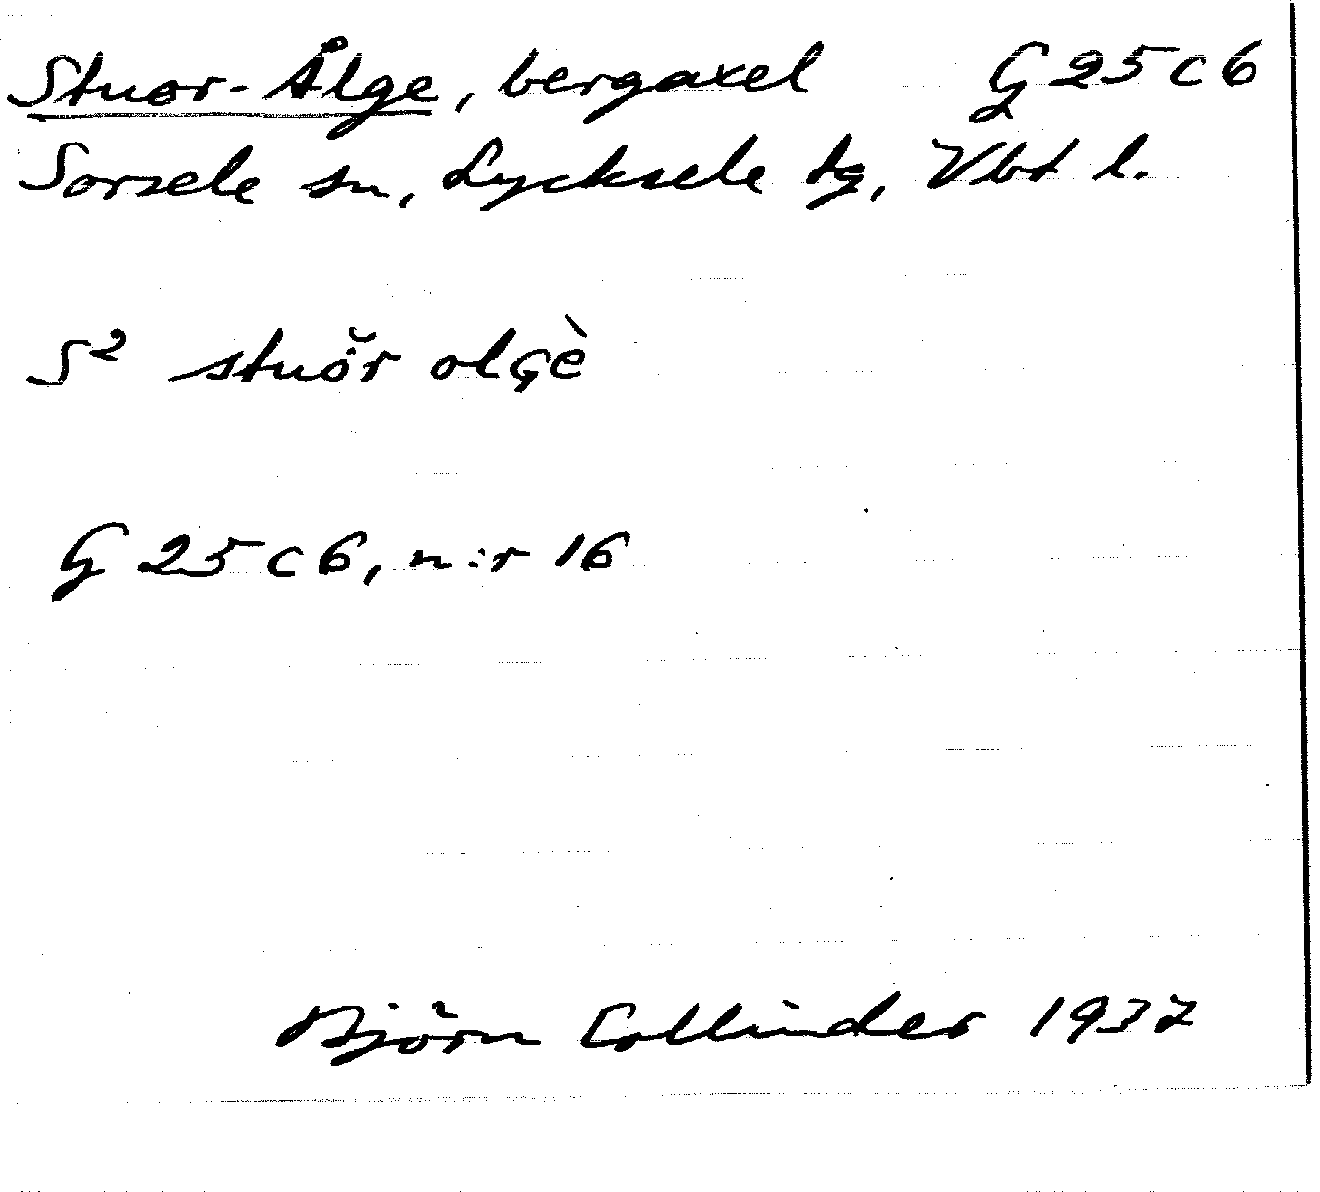 Stuor-Ålge, bergaxel G25c6
Sorsele sn, Lycksele tg, Vbt l.
S² stuo̎r olgè
G25c6, n:r 16
Björn Collinder 1937